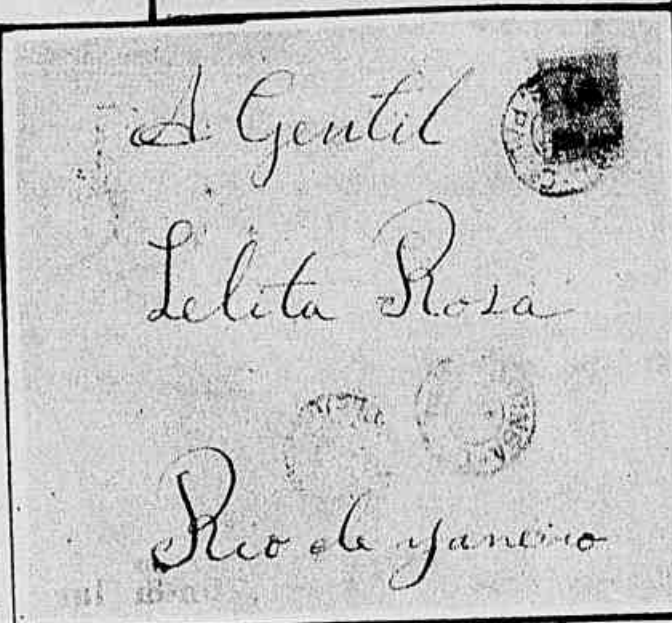 A Gentil
Lelita Rosa
Rio de Janeiro